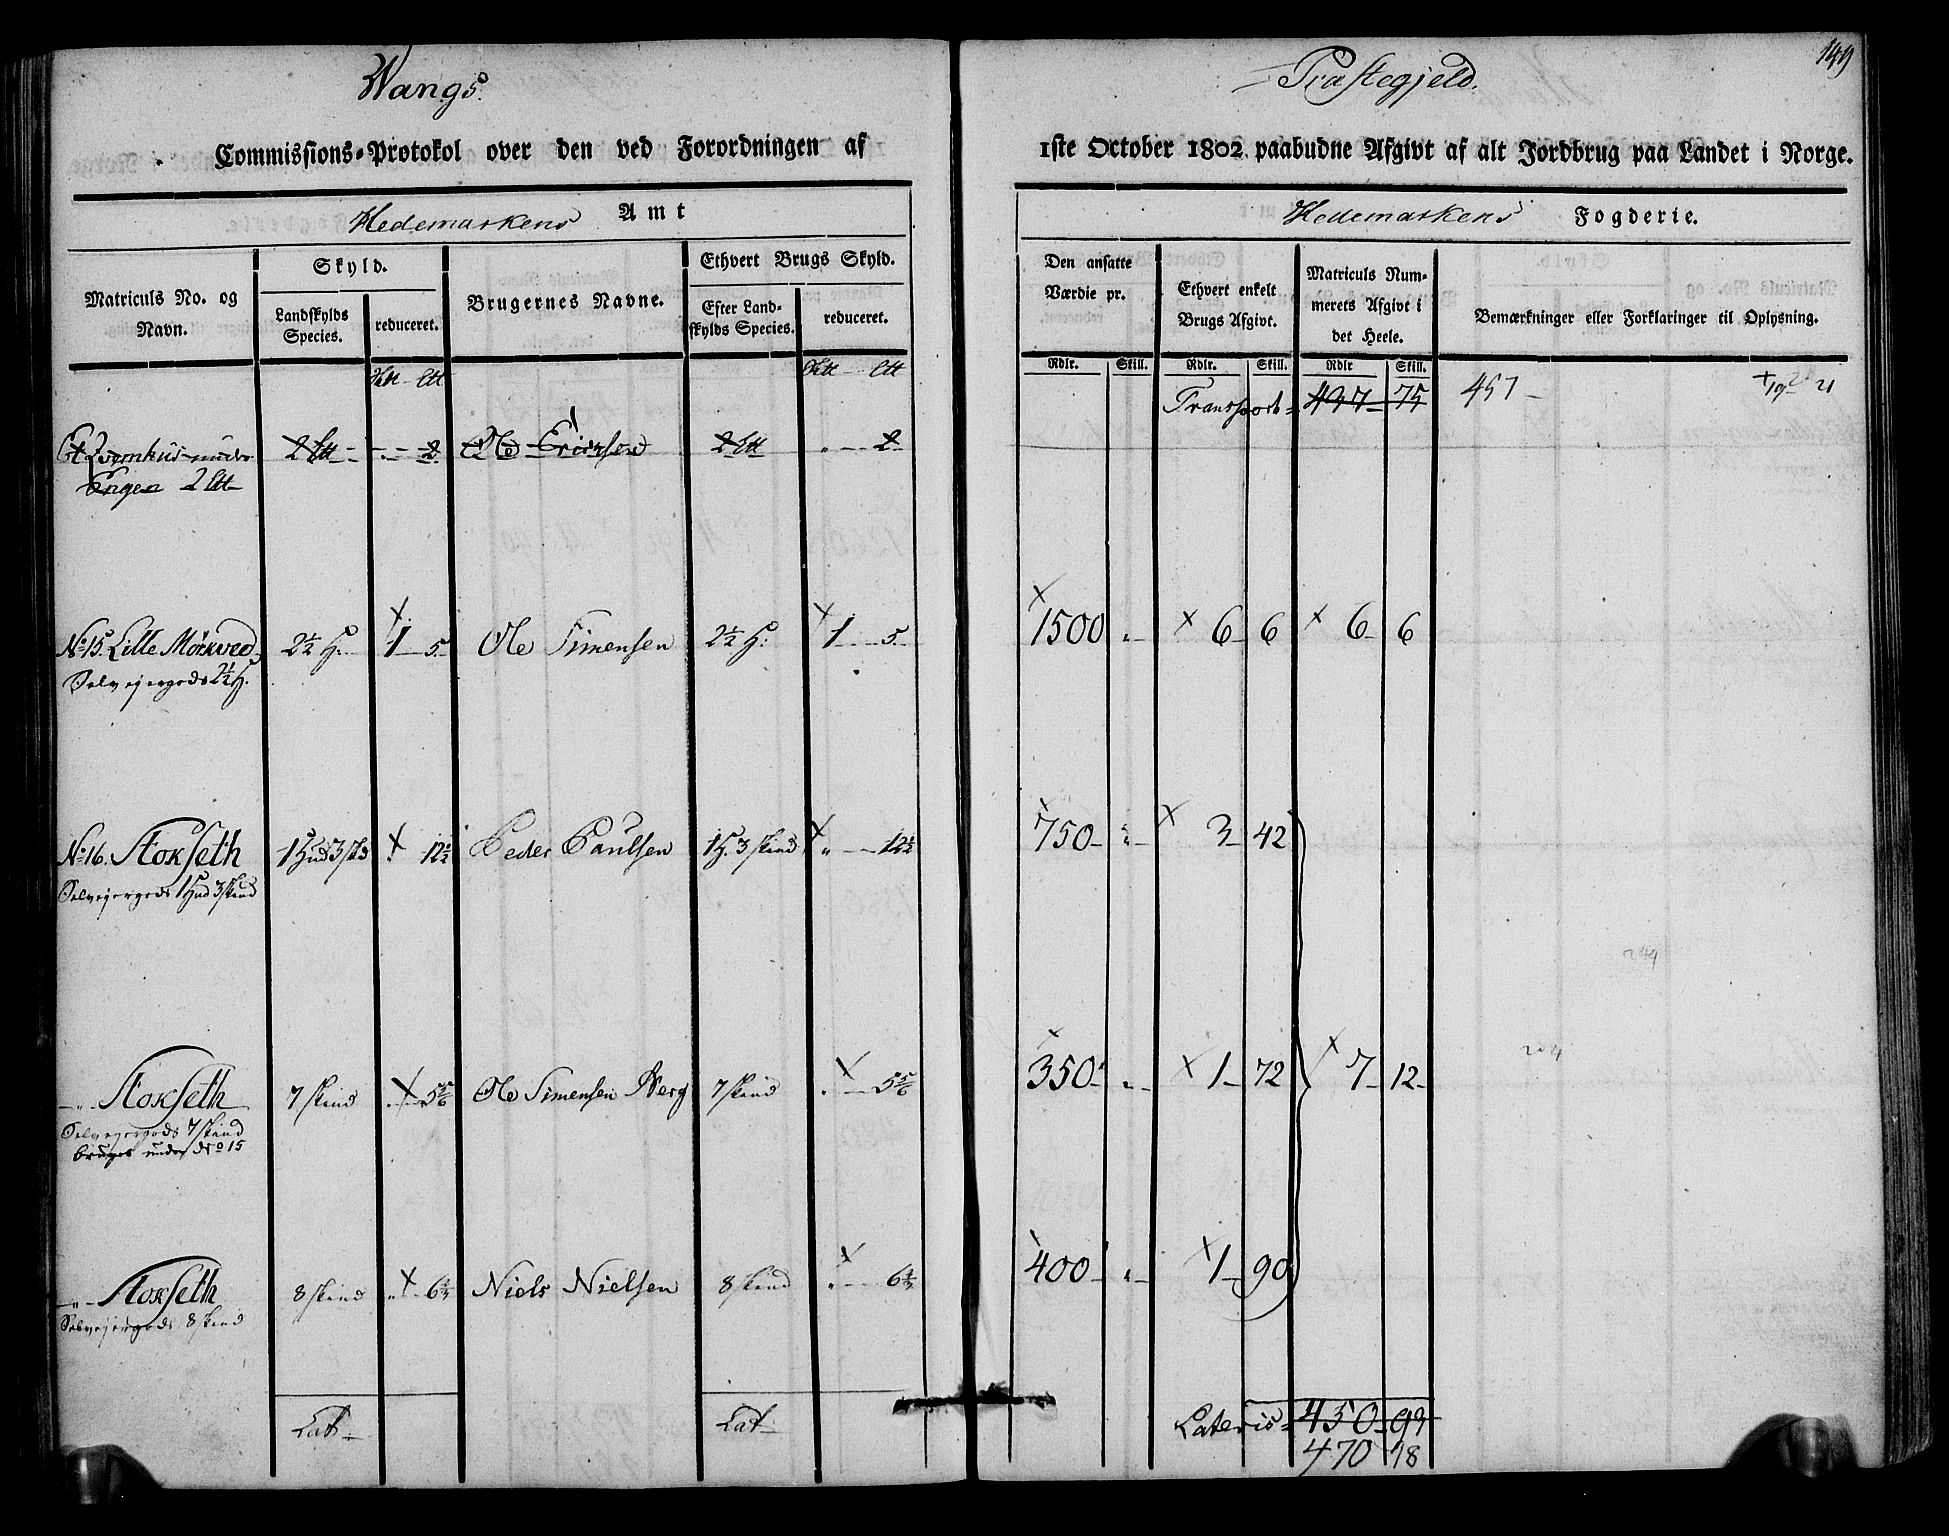 Wangs
Præstegjeld.
149
Commissions-Protokol over den ved Forordningen af
1ste October 1802 paabudne Afgivt af alt Jordbrug paa Landet i Norge.
Hedemarkens Amt
Hedemarkens Fogderie.
Matriculs No. og Navn.
Skyld.
Landskylds Species.
reduceret.
Brugernes Navne.
Ethvert Brugs Skyld.
Efter Landskylds Species.
reduceret.
Den ansatte Værdie pr.
Ethvert enkelt Brugs Afgivt.
Matriculs Nummerets Afgivt i det Heele.
Bemærkninger eller Forklaringer til Oplysning.
Rdlr. Skill. Rdlr. Skill. Rdlr Skill.
Transport = 437 75 457
Engen 2
2 Ole Ericksen 2
No. 15. Lille Mörkved 2½ H: 1 5 Ole Simensen 2½ H: 1 5 1500 6 6 6 6
Selvejergods 2½ H.
No. 16. Stokseth 1 Hud 3 sk 12½ Peder Paulsen 1 H. 3 skind 12½ 750 3 42
Selvejergods 1 Hud 3 skind
Stokseth 7 skind 5 5/6 Ole Simensen Berg 7 skind 5 5/6 350 1 72 7 12
Selvejergods 7 skind
bruges under No 15
Stokseth 8 skind 6⅔ Niels Nielsen 8 skind 6⅔ 400 1 90
Selvejergods 8 skind
Lat. Lat. Lateris = 450 93
470 18